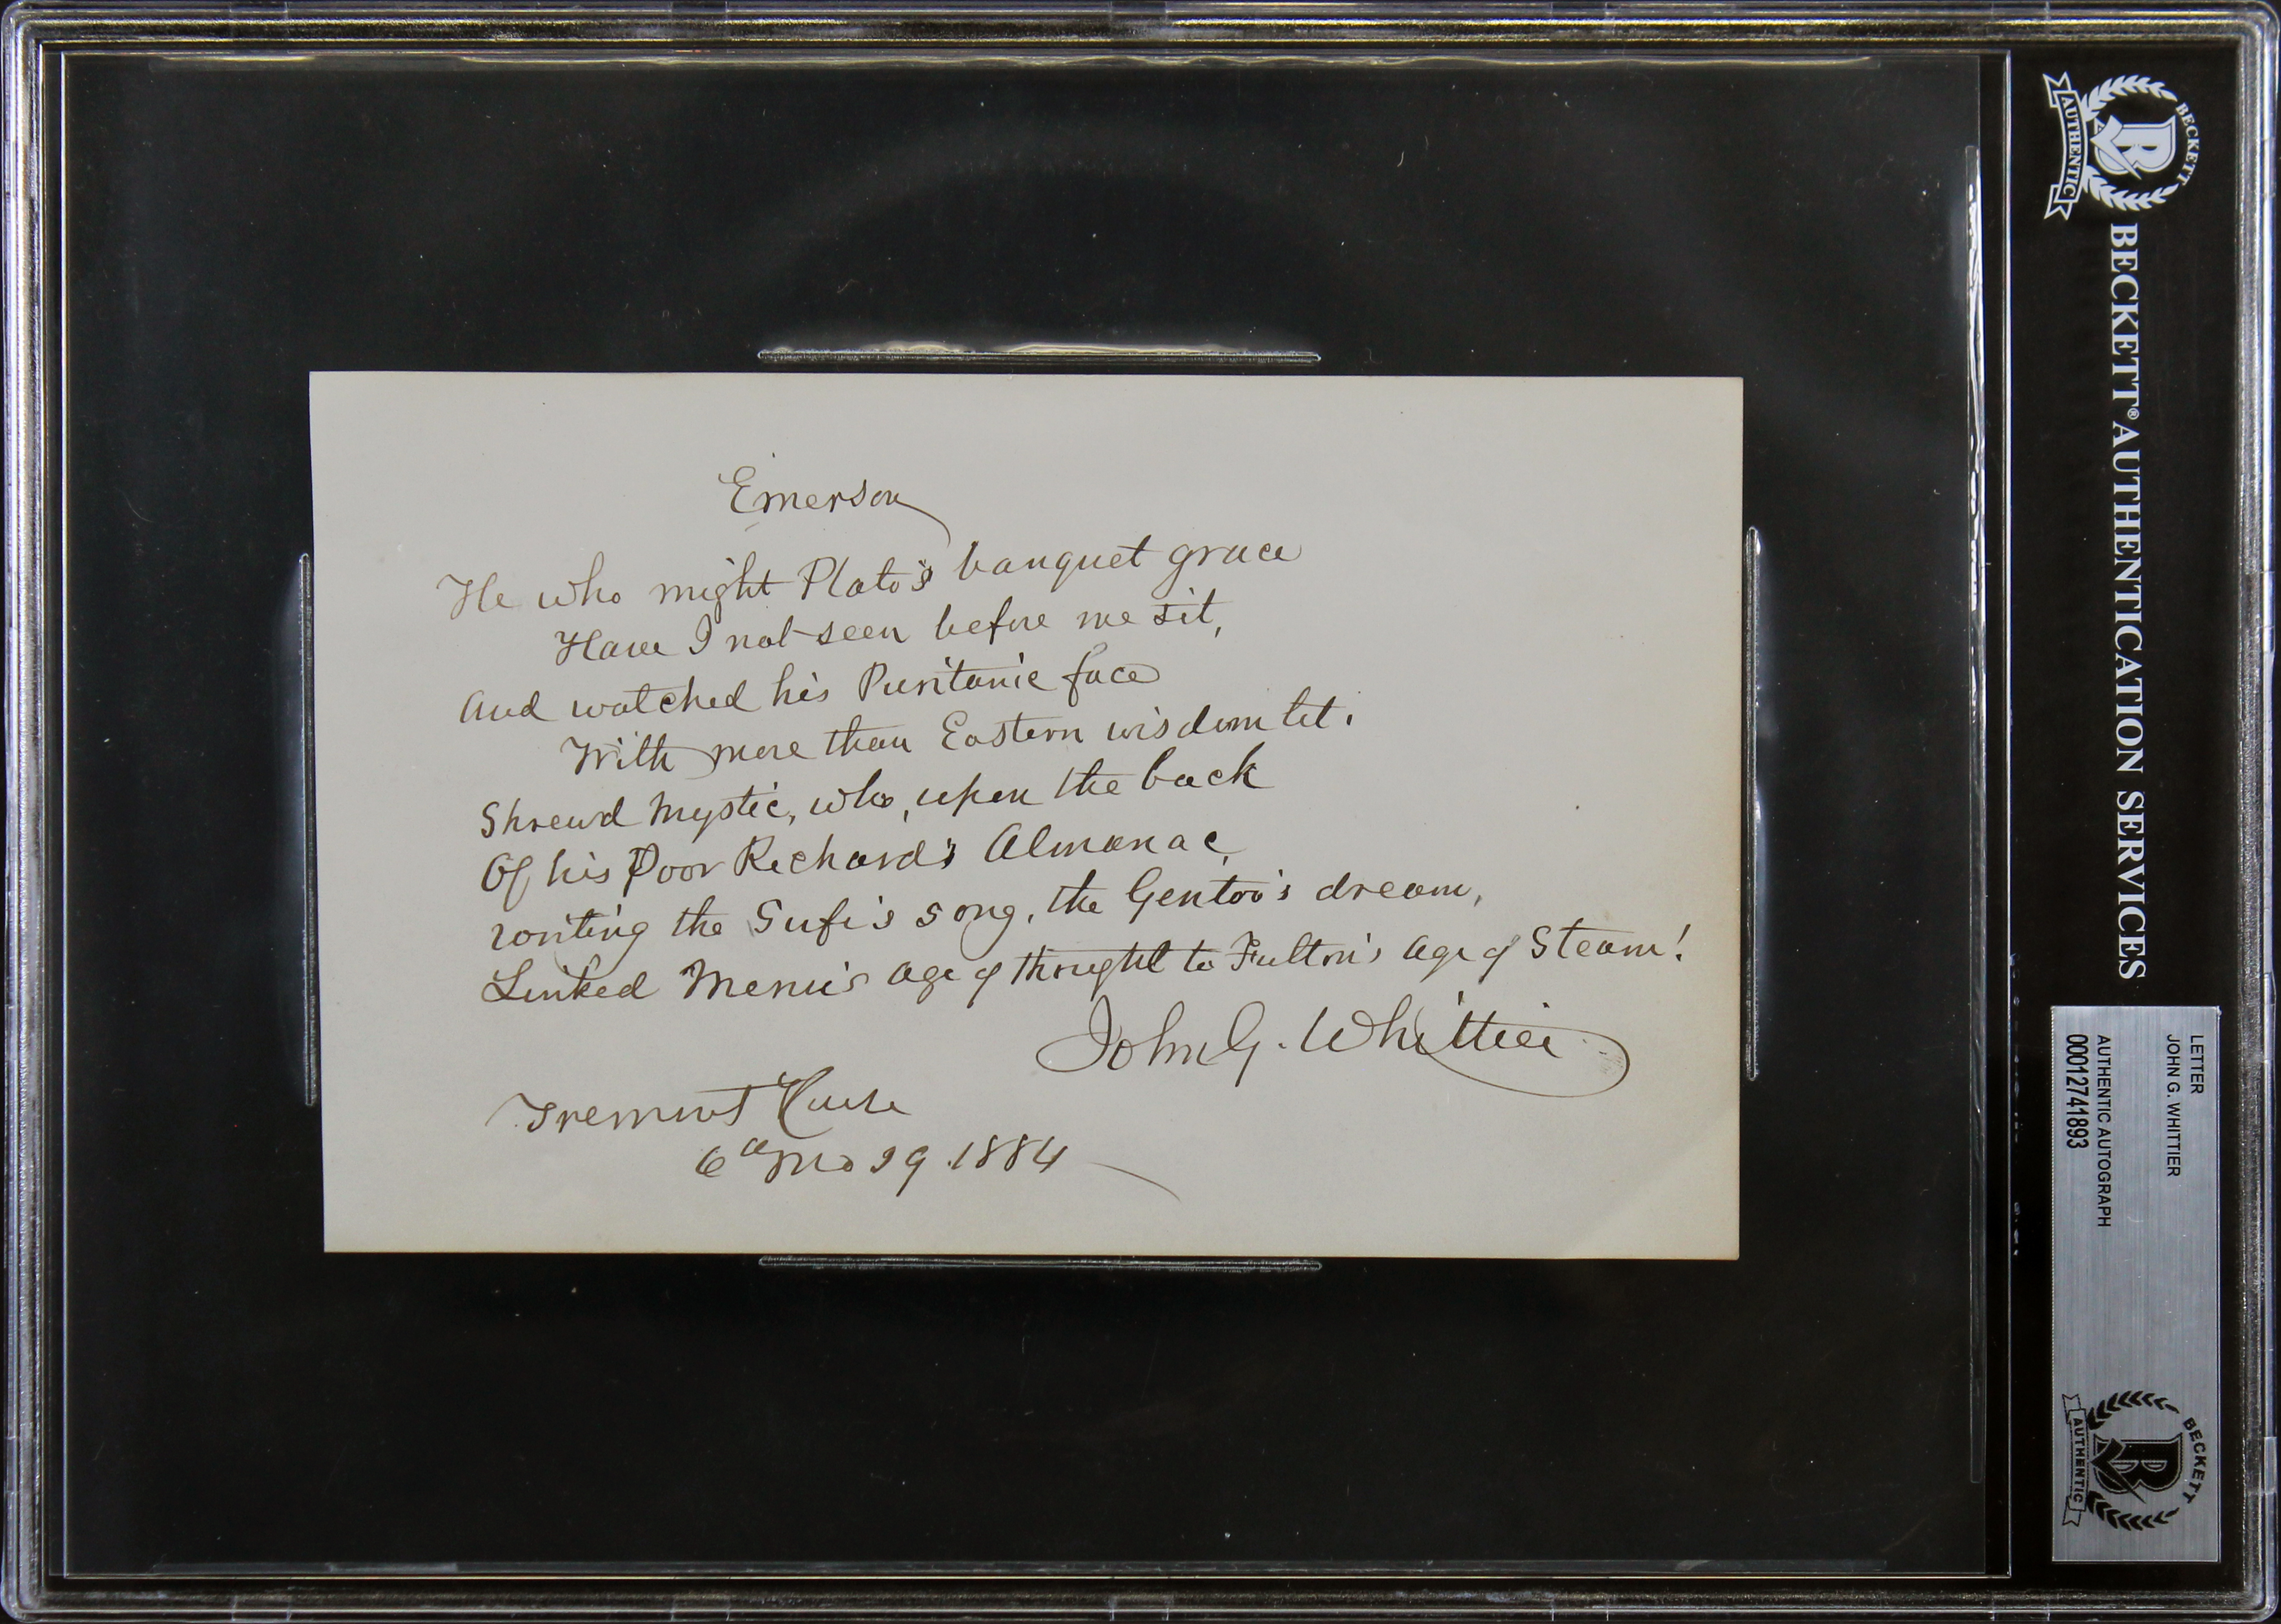 Emerson
He who might Plato's banquet grace
Have I not seen before me sit,
And watched his Puritanic face
With more than Eastern wisdom lit.
Shrewd mystic, who, upon the back
Of his Poor Richard's Almanac,
writing the Sufi's song, the Gentoo's dream,
Linked Menu's age of thought to Fulton's age of Steam!
John G. Whittier
Tremont House
6th Mo 29 1884
BECKETT
AUTHENTIC
BECKETT® AUTHENTICATION SERVICES
LETTER
JOHN G. WHITTIER
AUTHENTIC AUTOGRAPH
00012741893
BECKETT
AUTHENTIC